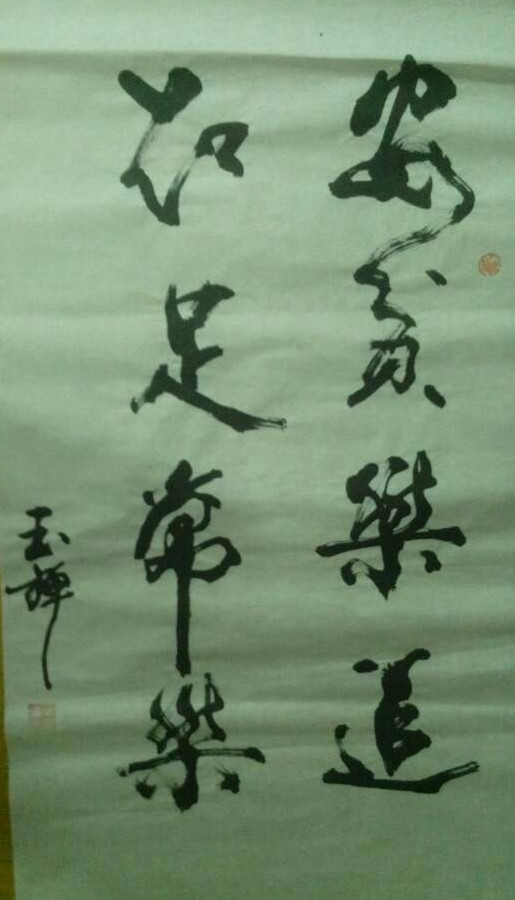 安貧樂道
知足常樂
玉輝